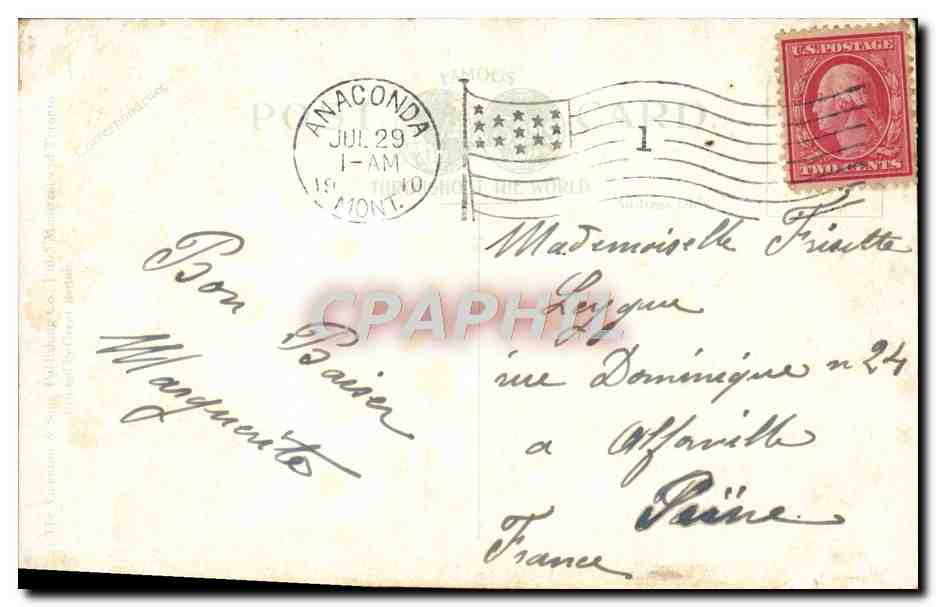 FAMOUS
POST CARD
THROUGHOUT THE WORLD
Correspondence
ANACONDA
JUL 29
1-AM
1910
MONT.
1
U.S. POSTAGE
TWO CENTS
Bon
Baiser
Marguerite
Mademoiselle Frisette
Leygue
rue Dominique n 24
a Alfaville
Seine
France
CPAPHIL
Publishing Co., Ltd., Montreal and Toronto
Printed in Great Britain